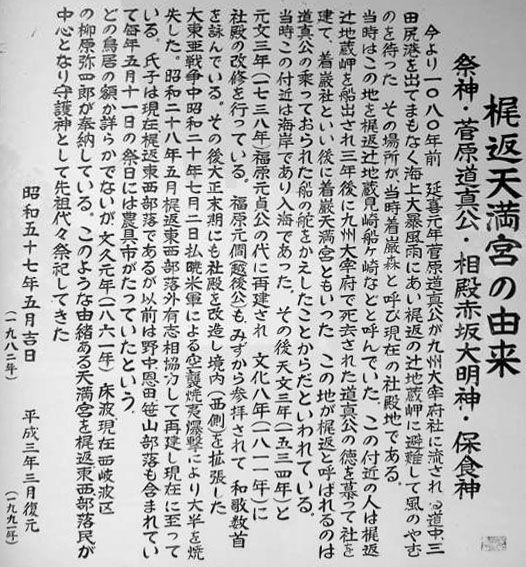 梶返天満宮の由来
祭神・菅原道真公・相殿赤坂大明神・保食神
今より一〇八〇年前　延喜元年菅原道真公が九州大宰府社に流される道中三
田尻港を出てまもなく海上大暴風雨にあい梶返の辻地蔵岬に避難して風のやむ
のを待った　その場所が当時着巌森と呼び現在の社殿地である。
当時はこの地を梶返辻地蔵見崎船ヶ崎などと呼んでいた　この付近の人は梶返
辻地蔵岬を船出され三年後に九州大宰府で死去された道真公の徳を慕って社を
建て、着巌社といい後に着巌天満宮ともいった　この地が梶返と呼ばれるのは
道真公の乗っておられた船の舵をかえしたことからだといわれている。
当時この付近は海岸であり入海であった。その後天文三年（一五三四年）と
元文三年（一七三八年）福原元貞公の代に再建され　文化八年（一八一一年）に
社殿の改修を行っている。福原元僴（越後公）も、みずから参拝されて　和歌数首
を詠んでいる。その後大正末期にも社殿を改造し境内（西側）を拡張した
大東亜戦争中昭和二十年七月二日払暁米軍による空襲焼夷爆撃により大半を焼
失した。昭和二十八年五月梶返東西部落外有志相協力して再建し現在に至って
いる。氏子は現在梶返東西部落であるが以前は野中恩田笹山部落も含まれてい
て毎年五月十一日の祭日には農具市がたっていたという。
どの鳥居の額か詳らかでないが文久元年（一八六一年）床波現在西岐波区
の柳原弥四郎が奉納している。このような由緒ある天満宮を梶返東西部落民が
中心となり守護神として先祖代々祭祀してきた
昭和五十七年五月吉日　平成三年三月復元
（一九八二年）　（一九九一年）